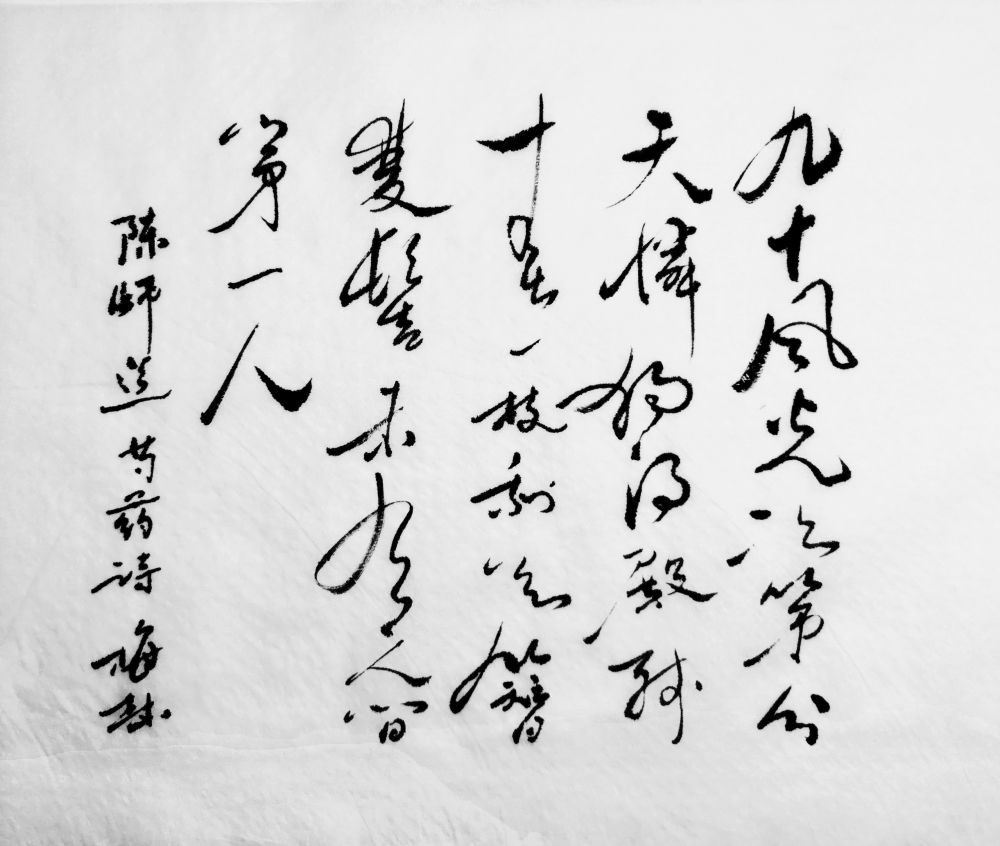 九十风光次第分
天憐獨得殿殘
春一枝剩欲簪
雙髻未有人間
第一人
陈师道芍药诗